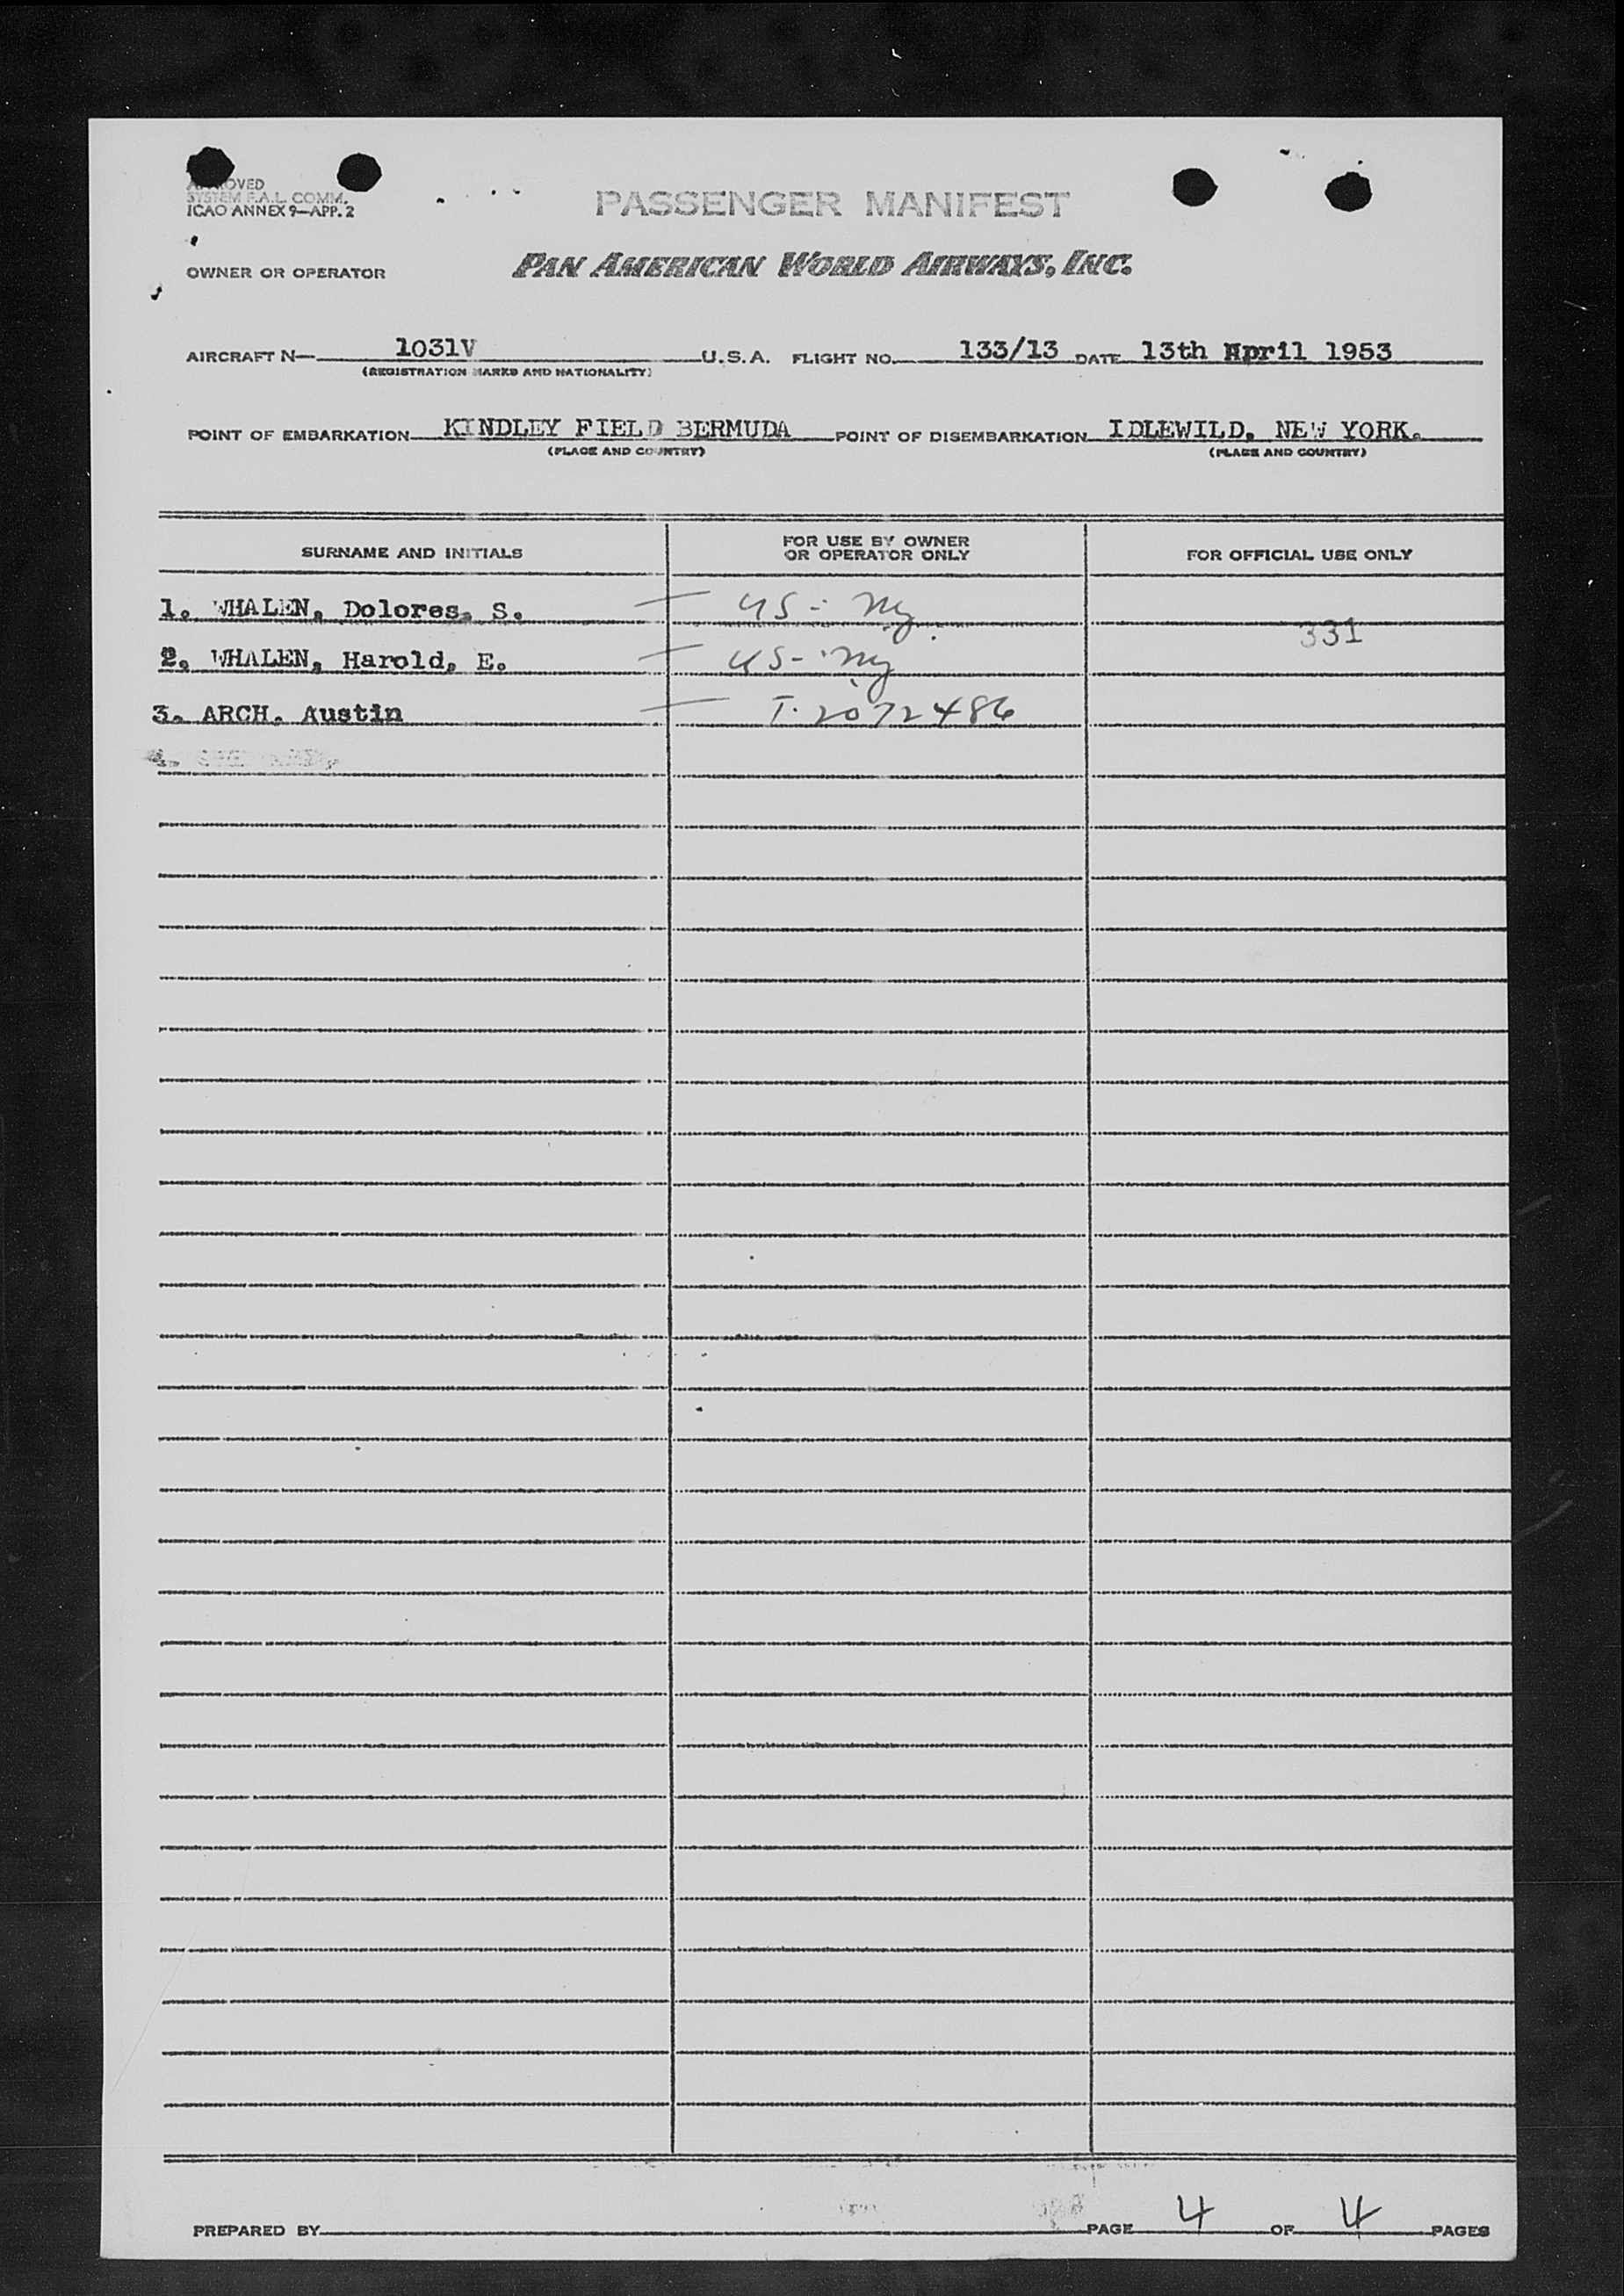 APPROVED
SYSTEM F.A.L. COMM.
ICAO ANNEX 9—APP. 2
PASSENGER MANIFEST
OWNER OR OPERATOR PAN AMERICAN WORLD AIRWAYS, INC.
AIRCRAFT N— 1031V U.S.A. FLIGHT NO. 133/13 DATE 13th April 1953
(REGISTRATION MARKS AND NATIONALITY)
POINT OF EMBARKATION KINDLEY FIELD BERMUDA POINT OF DISEMBARKATION IDLEWILD, NEW YORK.
(PLACE AND COUNTRY) (PLACE AND COUNTRY)
SURNAME AND INITIALS FOR USE BY OWNER OR OPERATOR ONLY FOR OFFICIAL USE ONLY
1. WHALEN, Dolores, S. — US - Ny
331
2. WHALEN, Harold, E. — US - Ny
3. ARCH. Austin — T. 2072486
4.
PREPARED BY PAGE 4 OF 4 PAGES